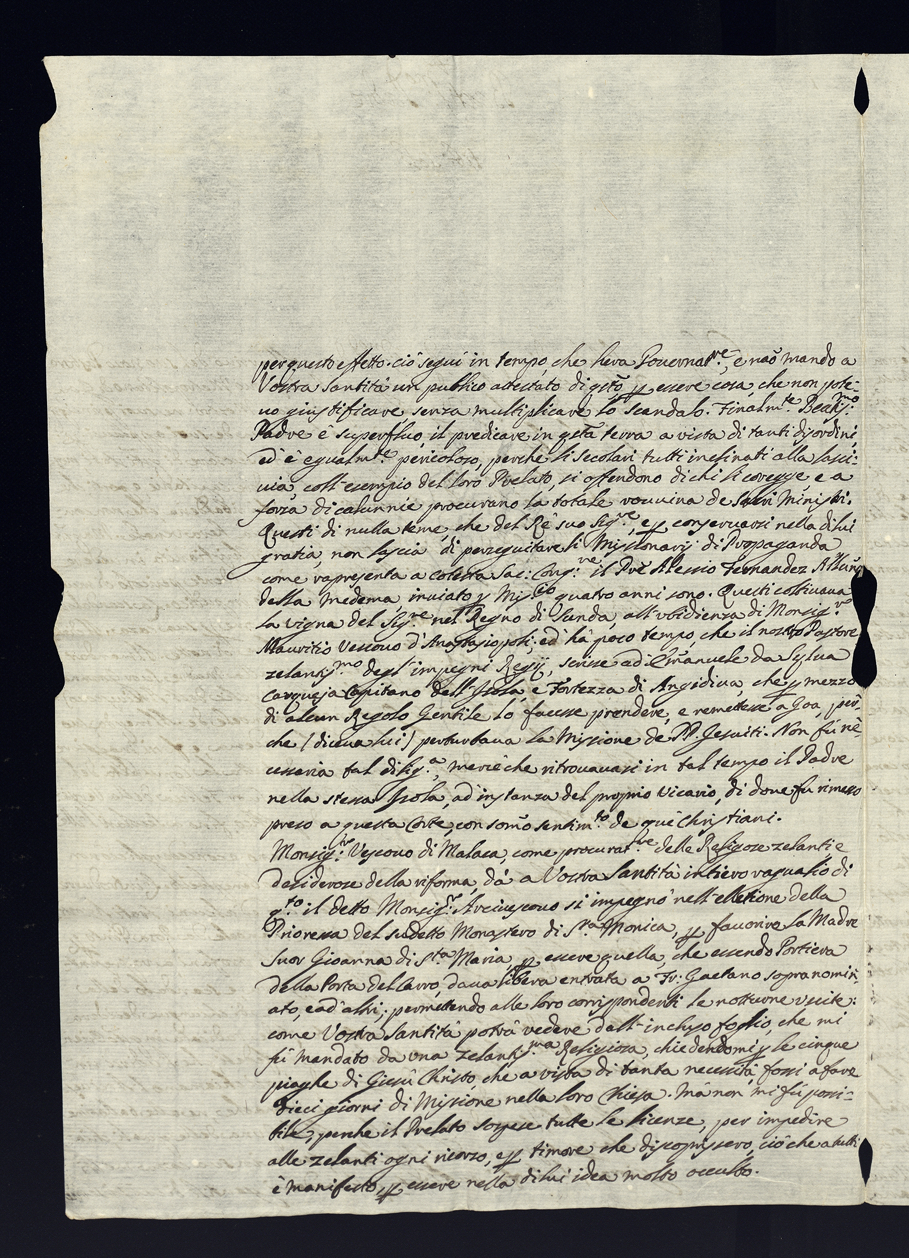 per questo effetto. ciò seguì in tempo, che hera Governat.re, e naõ mando a
Vostra Santità un publico attestato di q̃sto p essere cosa, che non pote-
uo giustificare senza multiplicare lo scandalo. Finalm.te Beatis.mo
Padre è superfluo il predicare in q̃sta terra a vista di tanti disordini,
ed è egualm.te pericoloso, perche li secolari tutti inclinati alla lasci-
uia, coll'esempio del loro Prelato, si offendono di chi li coregge, e a
forza di calunnie procurano la totale rouuina de sacri Ministri.
Questi di nulla teme, che del Rè suo Sig.re, e p conseruarsi nella di lui
gratia, non lascia di perseguitare li Missionarij di Propaganda
come rapresenta a cotesta Sac: Cong.ne il Prẽ Alessio Fernandez Allũno
della medema, inuiato p Miss.rio quatro anni sono. Questi coltiuaua
la vigna del Sig.re nel Regno di Sunda, all'ubidienza di Monsig.re
Mauritio Vescouo d'Anastasiopoli; ed hà poco tempo che il nostro Pastore
zelantis.mo degl'impegni Regij, scrisse ad Emanuele da Sylua
Carqueja Capitano dell'Isola e Fortezza di Angidiua, che p mezzo
di alcun Regolo Gentile lo facesse prendere, e remettere a Goa, per-
che (diceua lui) perturbaua la Missione de PP. Gesuiti. Non fú ne-
cessaria tal dilig.a, mercè che ritrouauasi in tal tempo il Padre
nella stessa Isola, ad instanza del proprio Vicario, di doue fu rimesso
preso a questa Corte, con som̃o sentim.to de quei Christiani.
Monsig.r Vescouo di Malaca, come procurat.re delle Religiose zelanti e
desiderose della riforma, dá a Vostra Santità intiero raguaglio di
q.to il detto Monsig.r Arciuescouo si impegnò nell'elletione della
Prioressa del sudetto Monastero di S.ta Monica, p fauorire la Madre
Suor Gioanna di S.ta Maria, p essere quella, che essendo Portiera
della Porta del Carro, daua libera entrata a Fr: Gaetano sopranomin-
ato, e ad altri; permettendo alle loro corrispondenti le notturne uscite:
come Vostra Santità potrà vedere dall'incluso foglio, che mi
fú mandato da una zelantis.ma Religiosa, chiedendomi p le cinque
piaghe di Giesù Christo, che a vista di tanta necessità fossi a fare
dieci giorni di Missione nella loro Chiesa. Mà non mi fú possi-
bile; perche il Prelato sospese tutte le licenze, per impedire
alle zelanti ogni ricorso, e p timore che discoprissero, ciò che a tutti
è manifesto, p essere nella di lui idea molto occulto.